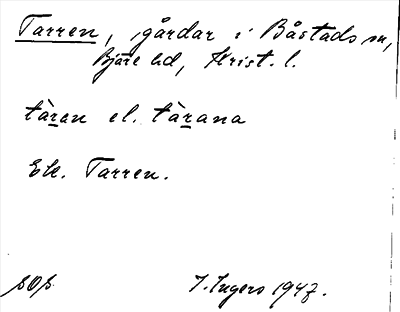 Tarren, gårdar i Båstads sn,
Bjäre hd, Krist. l.
tàran el. tàrana
Ek. Tarren.
SOS I. Ingers 1947.